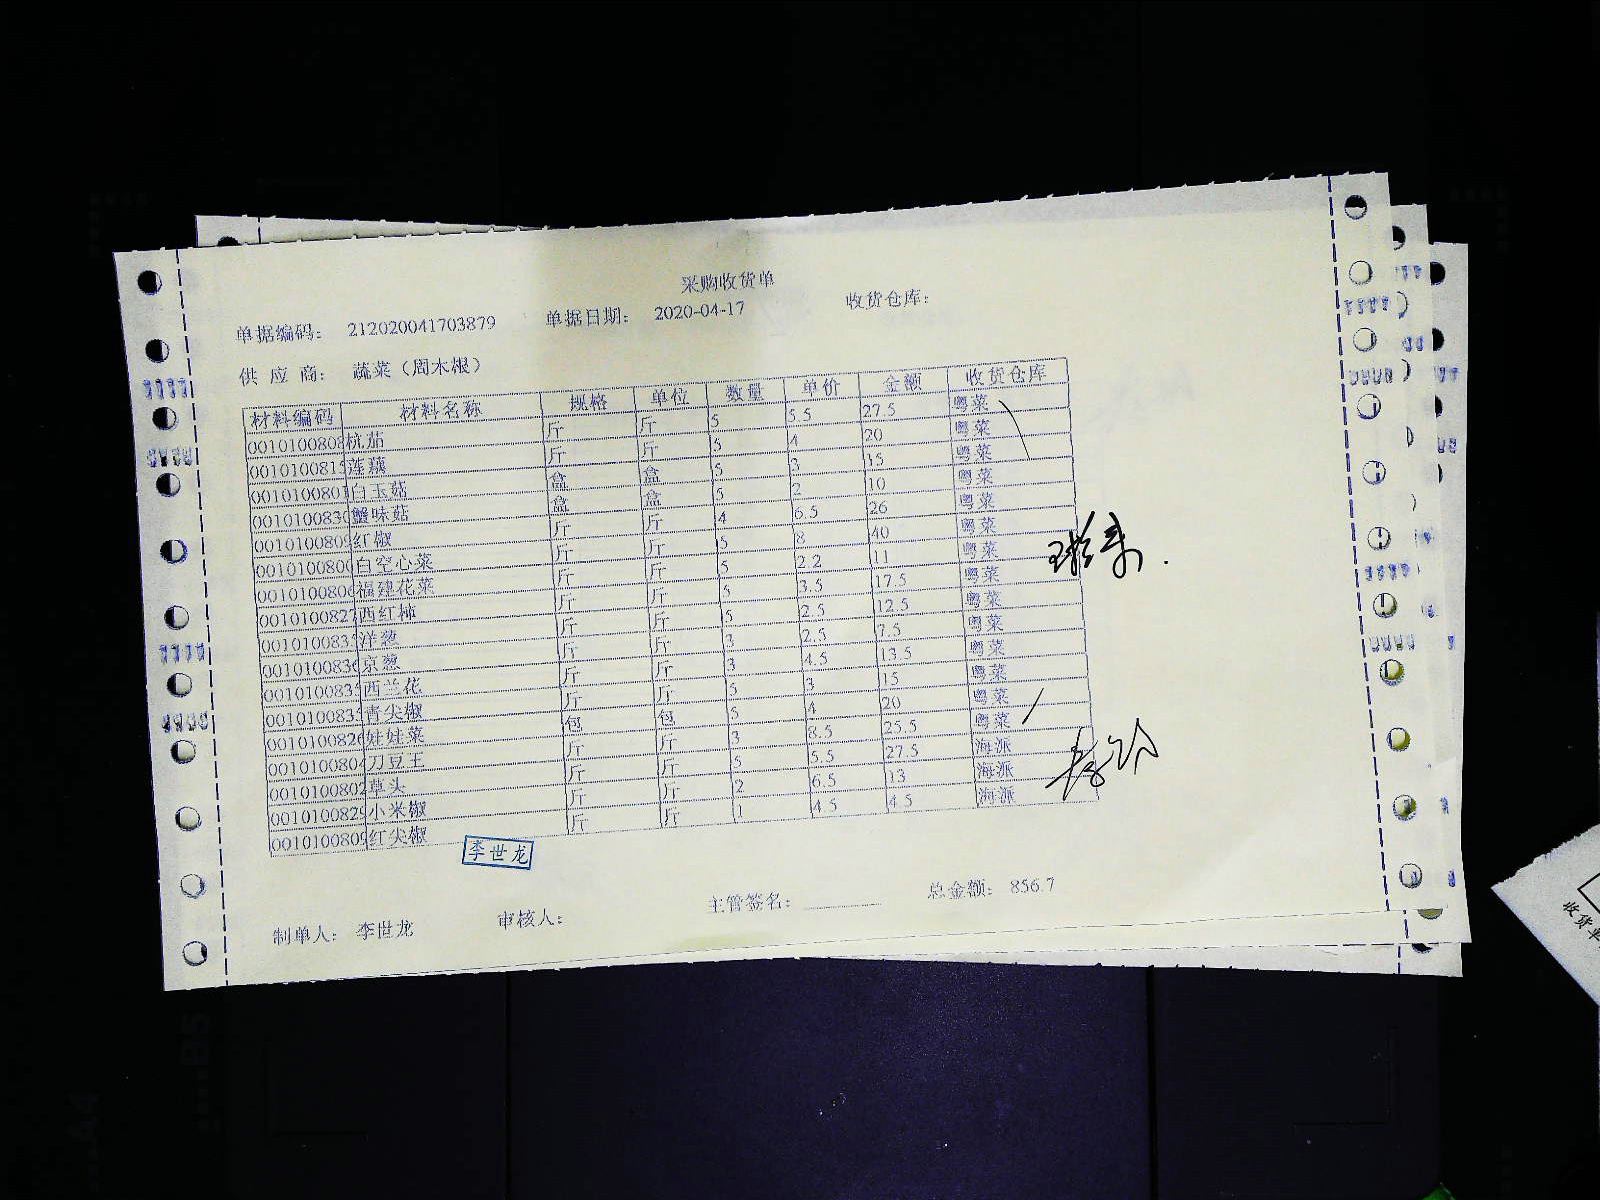 采购收货单
单据编码： 212020041703879 单据日期： 2020-04-17 收货仓库：
供 应 商： 蔬菜（周木根）
材料编码 材料名称 规格 单位 数量 单价 金额 收货仓库
0010100808 杭茄 斤 斤 5 5.5 27.5 粤菜
0010100815 莲藕 斤 斤 5 4 20 粤菜
0010100801 白玉菇 盒 盒 5 3 15 粤菜
0010100830 蟹味菇 盒 盒 5 2 10 粤菜
0010100809 红椒 斤 斤 4 6.5 26 粤菜
0010100800 白空心菜 斤 斤 5 8 40 粤菜
0010100806 福建花菜 斤 斤 5 2.2 11 粤菜
0010100827 西红柿 斤 斤 5 3.5 17.5 粤菜
0010100833 洋葱 斤 斤 5 2.5 12.5 粤菜
0010100836 京葱 斤 斤 3 2.5 7.5 粤菜
0010100835 西兰花 斤 斤 3 4.5 13.5 粤菜
0010100835 青尖椒 斤 斤 5 3 15 粤菜
0010100826 娃娃菜 包 包 5 4 20 粤菜
0010100804 刀豆王 斤 斤 3 8.5 25.5 粤菜
0010100802 草头 斤 斤 5 5.5 27.5 海派
0010100829 小米椒 斤 斤 2 6.5 13 海派
0010100809 红尖椒 斤 斤 1 4.5 4.5 海派
李世龙
制单人： 李世龙 审核人： 主管签名： 总金额： 856.7
收货单